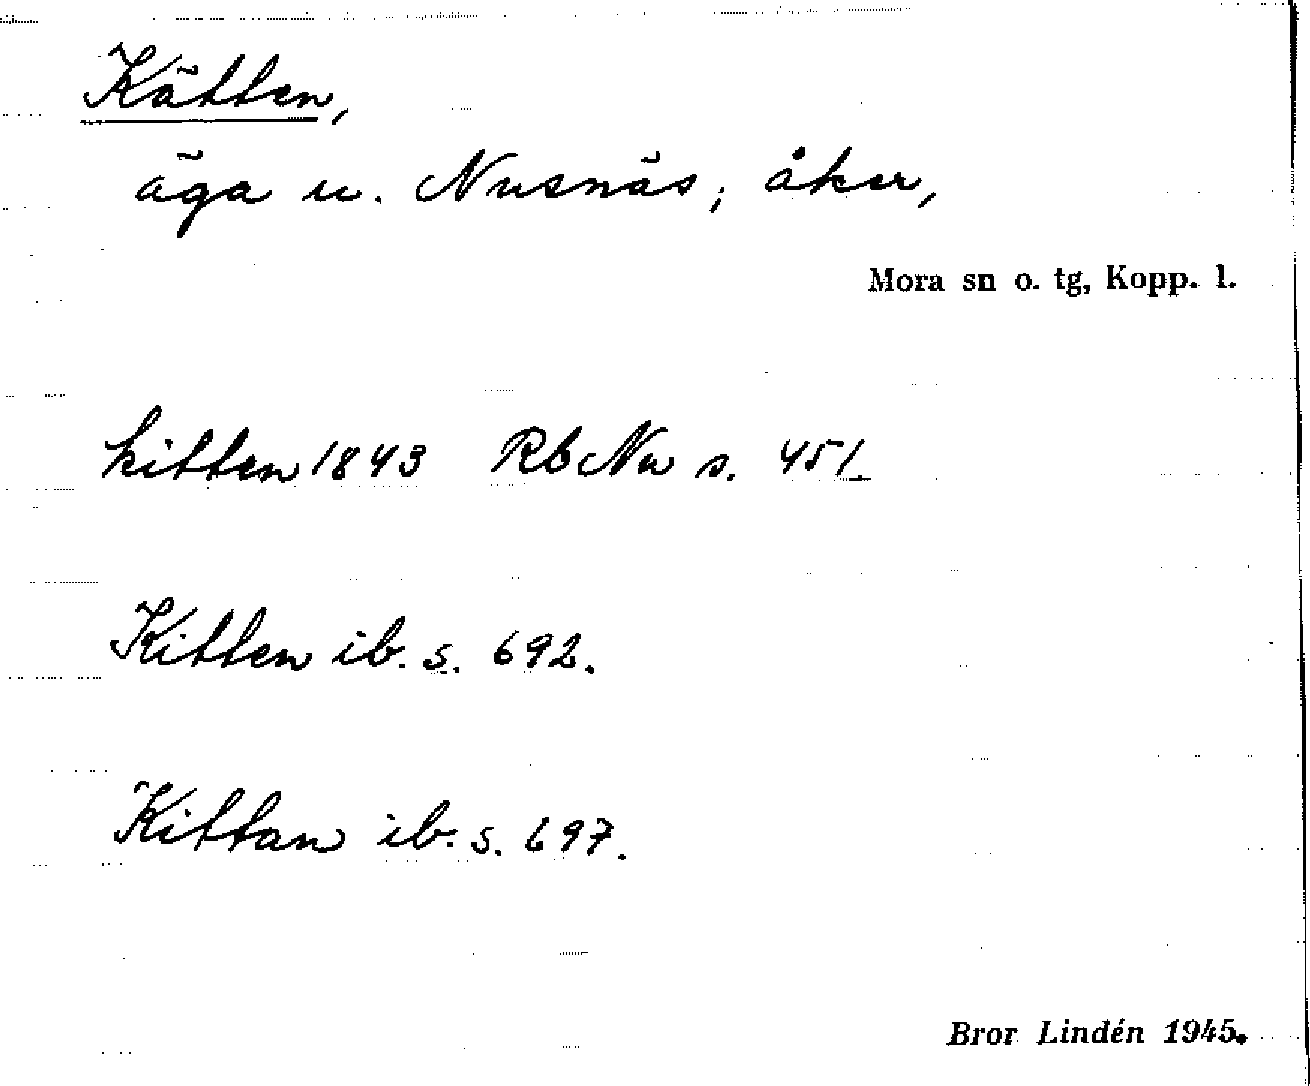 Kätten,
äga u. Nusnäs; åker,
Mora sn o. tg, Kopp. l.
kitten 1843 RbNu s. 451.
Kitten ib. s. 692.
Kittan ib. s. 697.
Bror Lindén 1945.